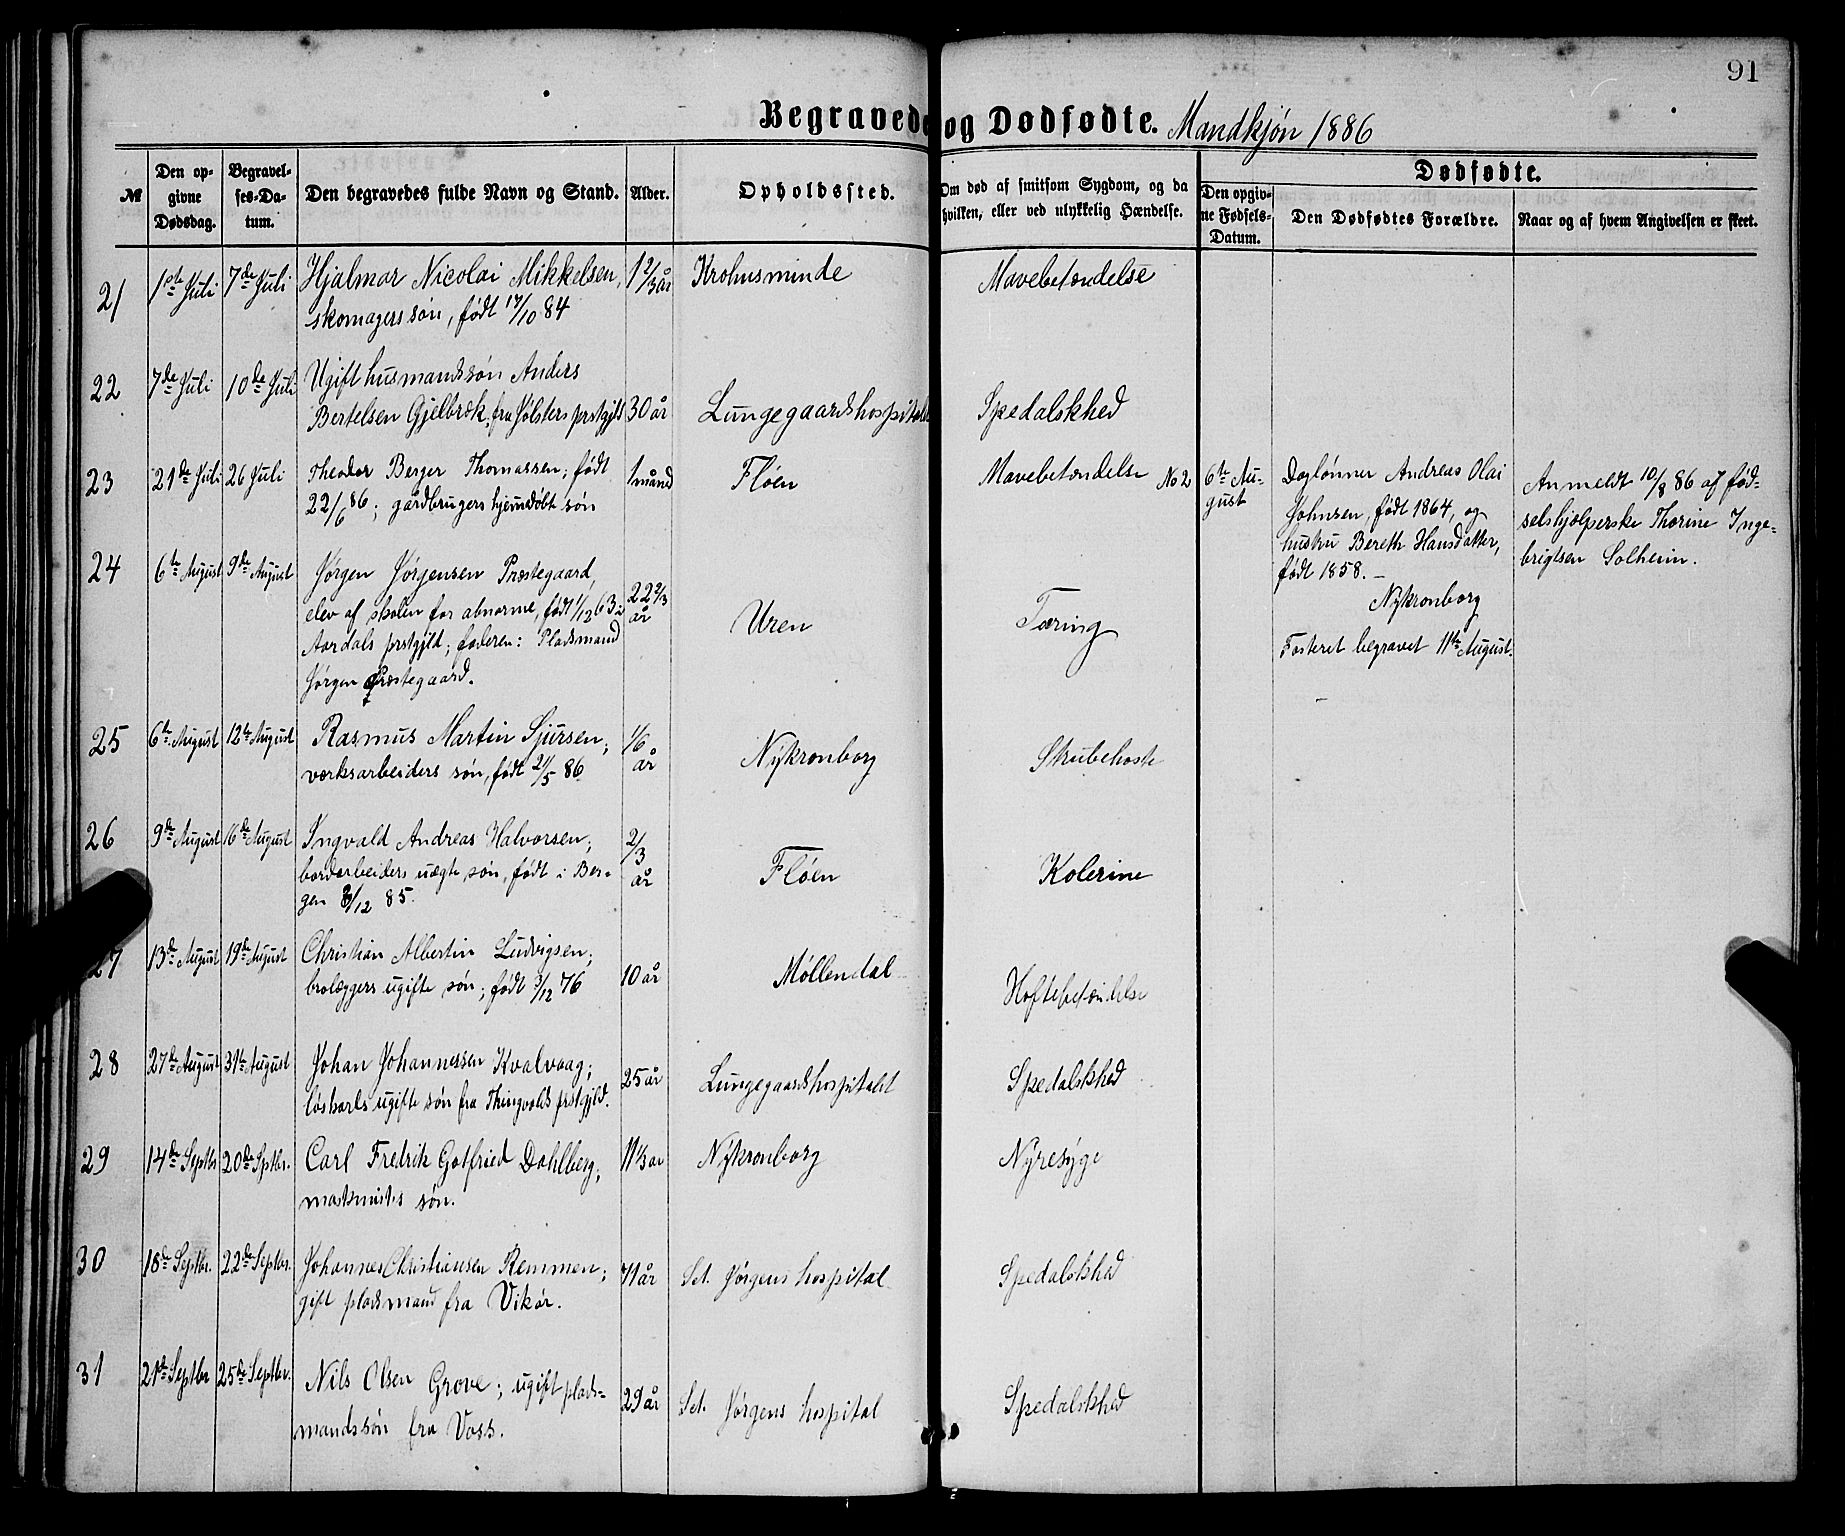 91
Begravede og Dødfødte. Mandkjøn 1886
№
Den opgivne Dødsdag.
Begravelses-Datum.
Den begravedes fulde Navn og Stand.
Alder.
Opholdssted.
Om død af smitsom Sygdom, og da hvilken, eller ved ulykkelig Hændelse.
Dødfødte.
Den opgivne Fødsels-Datum.
Den Dødfødtes Forældre.
Naar og af hvem Angivelsen er skeet.
21 1ste Juli 7de Juli Hjalmar Nicolai Mikkelsen, 1 2/3 år Krohusminde Mavebetændelse
skomagers søn, født 17/10 84
22 7de Juli 10de Juli Ugift husmandssøn Anders
Bertelsen Gjelbræk, fra Jølsters prstgjld 30 år Lungegaardshospitalet Spedalskhed
23 21de Juli 26 Juli Theodor Berger Thomassen; født 1 månd Fløen Mavebetændelse
22/6 86; gårdbrugers hjemdøbt søn
No 2 6te August
Daglønner Andreas Olai
Johnsen, født 1864, og
hustru Bereth Hansdatter,
født 1858. –
Nykronborg
Fosteret begravet 11te August.
Anmeldt 10/8 86 af fød-
selshjælperske Thorine Inge-
brigtsen Solheim.
24 6te August 9de August Jørgen Jørgensen Præstegaard, 22 2/3 år Uren Tæring
elev af skolen for abnorme, født 1/12 63 i
Aardals prstgjld; faderen: Pladsmand
Jørgen Præstegaard.
25 6te August 12te August Rasmus Martin Sjursen; 1/6 år Nykronborg Strubehoste
værksarbeiders søn, født 21/5 86
26 9de August 16de August Ingvald Andreas Halvorsen; 2/3 år Fløen Kolerine
bordarbeiders uægte søn, født i Ber-
gen /12 85.
27 13de August 19de August Christian Albertin Ludvigsen; 10 år Møllendal Hoftebetændelse
brolæggers ugifte søn; født 3/12 76
28 27de August 31te August Johan Johannessen Kvalvaag; 25 år Lungegaardshospitalet Spedalskhed
løskarls ugifte søn fra Thingvolds prstgjld.
29 14de Septbr 20de Septbr. Carl Fredrik Gotfried Dahlberg, 11 1/3 år Nykronborg Nyresyge
maskinists søn.
30 18de Septbr. 22de Septbr. Johannes Christiansen Remmen; 71 år Sct. Jørgens hospital Spedalskhed
gift pladsmand fra Vikør.
31 21de Septbr 25de Septbr. Nils Olsen Grove; ugift plads- 29 år Sct. Jørgens hospital Spedalskhed
mandssøn fra Voss.